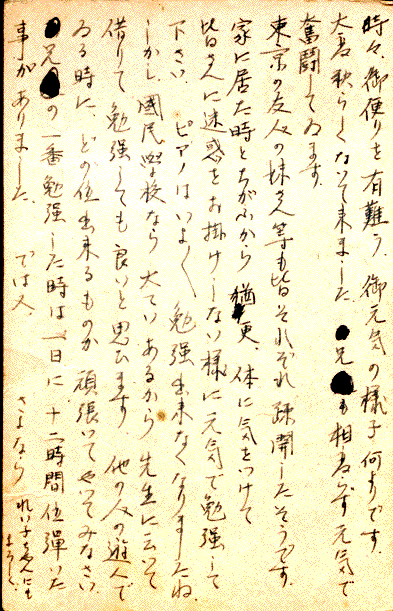 時々御便りを有難う、御元気の様子何よりです。
大変秋らしくなつて来ました。兄も相変らず元気で
奮闘してゐます。
東京の友人の妹さん等も皆それぞれ疎開したそうです。
家に居た時とちがふから猶更、体に気をつけて
皆さんに迷惑をお掛けしない様に元気で勉強して
下さい。ピアノはいよ〳〵勉強出来なくなりましたね。
しかし、國民学校なら大ていあるから先生に云つて
借りて勉強しても良いと思ひます。他の人の遊んで
ゐる時に、どの位出来るものか頑張つてやつてみなさい。
兄の一番勉強した時は一日に十二時間位弾いた
事がありました。では又、さよなら
れい子ちやんにも
よろしく